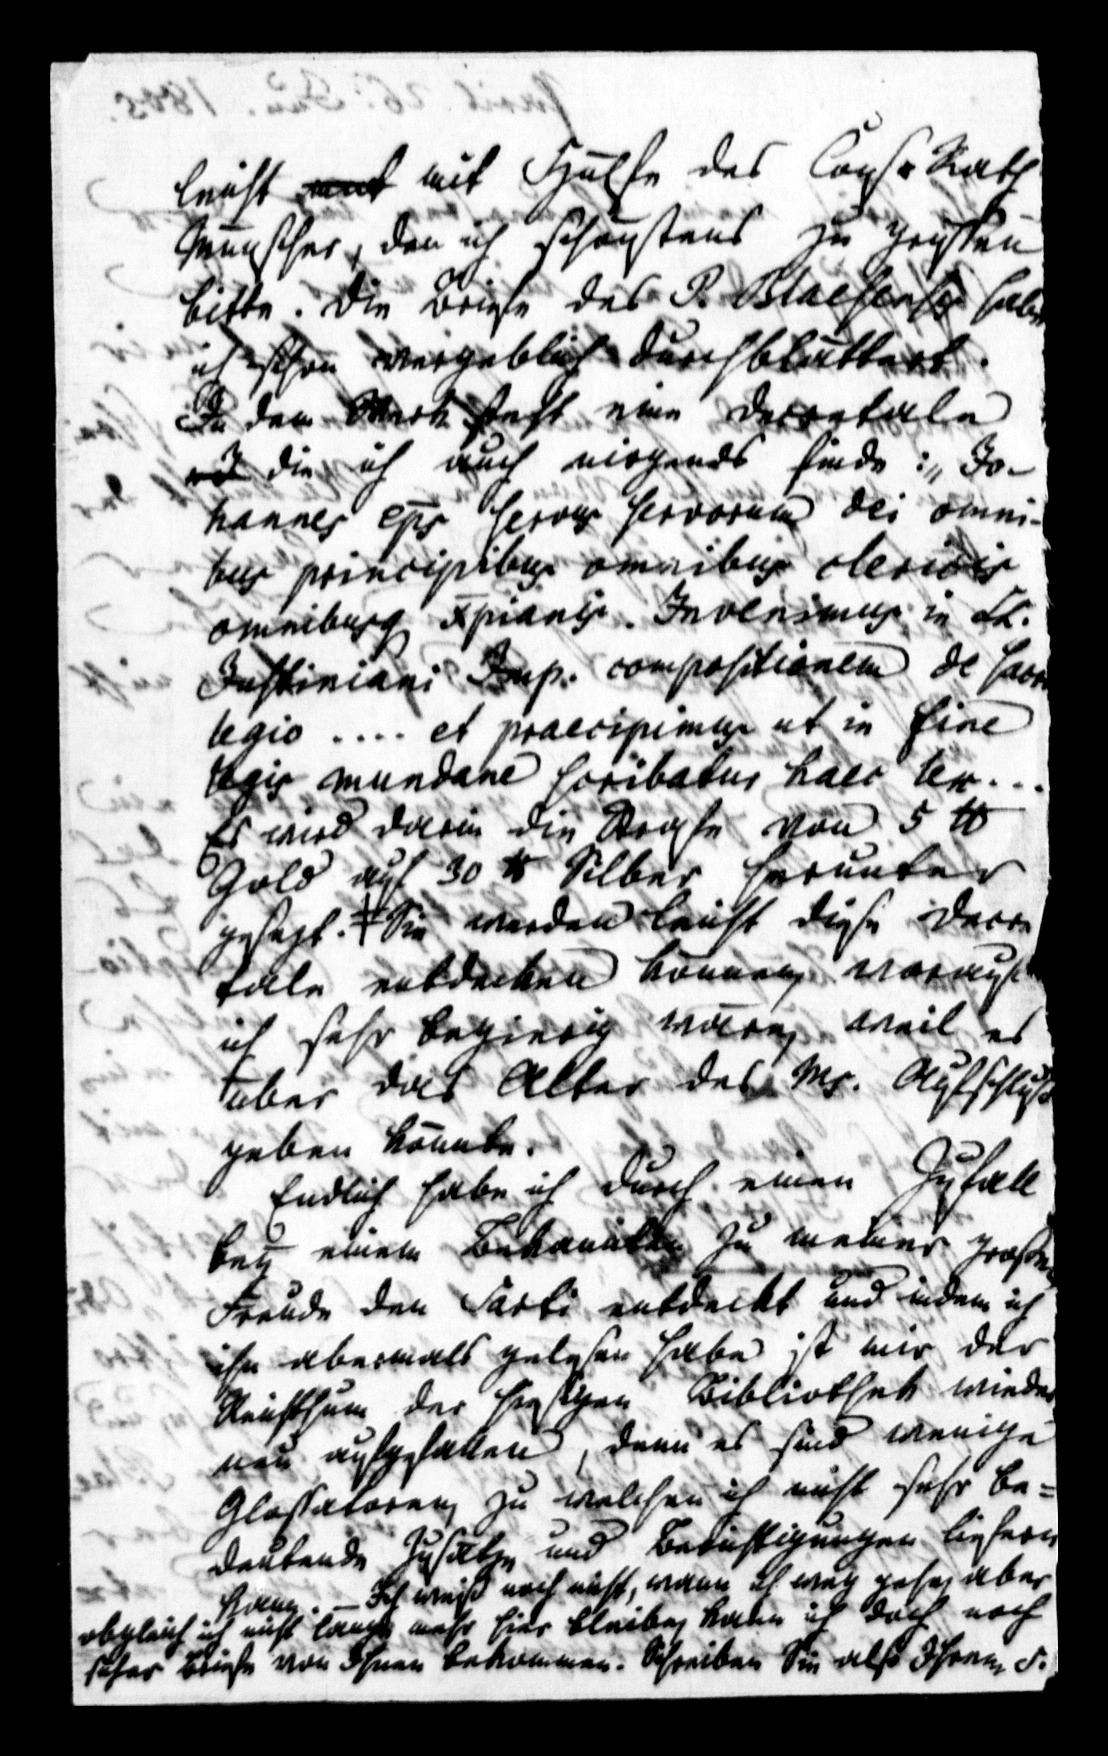 leicht mit Hülfe des Cons. Rath
Münscher, den ich schönstens zu grüssen
bitte. Die Briefe des P. Blaesensis habe
ich schon vergeblich durchblättert.
In dem Werk steht eine Decretale
die ich auch nirgends finde: „Jo-
hannes eps servus servorum dei omni-
bus principibus omnibus clericis
omnibusq xpianis. Invenimus in LL.
Justiniani Imp. compositionem de sacri
legio .... et praecipimus ut in fine
legis mundane scribatur haec lex...
Es wird darin die Strafe von 5 ℔
Gold auf 30 ℔ Silber herunter
gesezt. Sie werden leicht diese Decre
tale entdecken können, worauf
ich sehr begierig wäre, weil es
über das Alter des Ms. Aufschluß
geben könnte.
Endlich habe ich durch einen Zufall
bey einem Bekannten zu meiner großen
Freude den Sarti entdeckt und indem ich
ihn abermals gelesen habe ist mir der
Reichthum der hiesigen Bibliothek wieder
neu aufgefallen, denn es sind wenige
Glossatoren, zu welchen ich nicht sehr be=
deutende Zusätze und Berichtigungen liefern
kann. — Ich weiß noch nicht, wann ich weg gehe, aber
obgleich ich nicht lange mehr hier bleibe, kann ich doch noch
sicher Briefe von Ihnen bekommen. Schreiben Sie also Ihrem S.